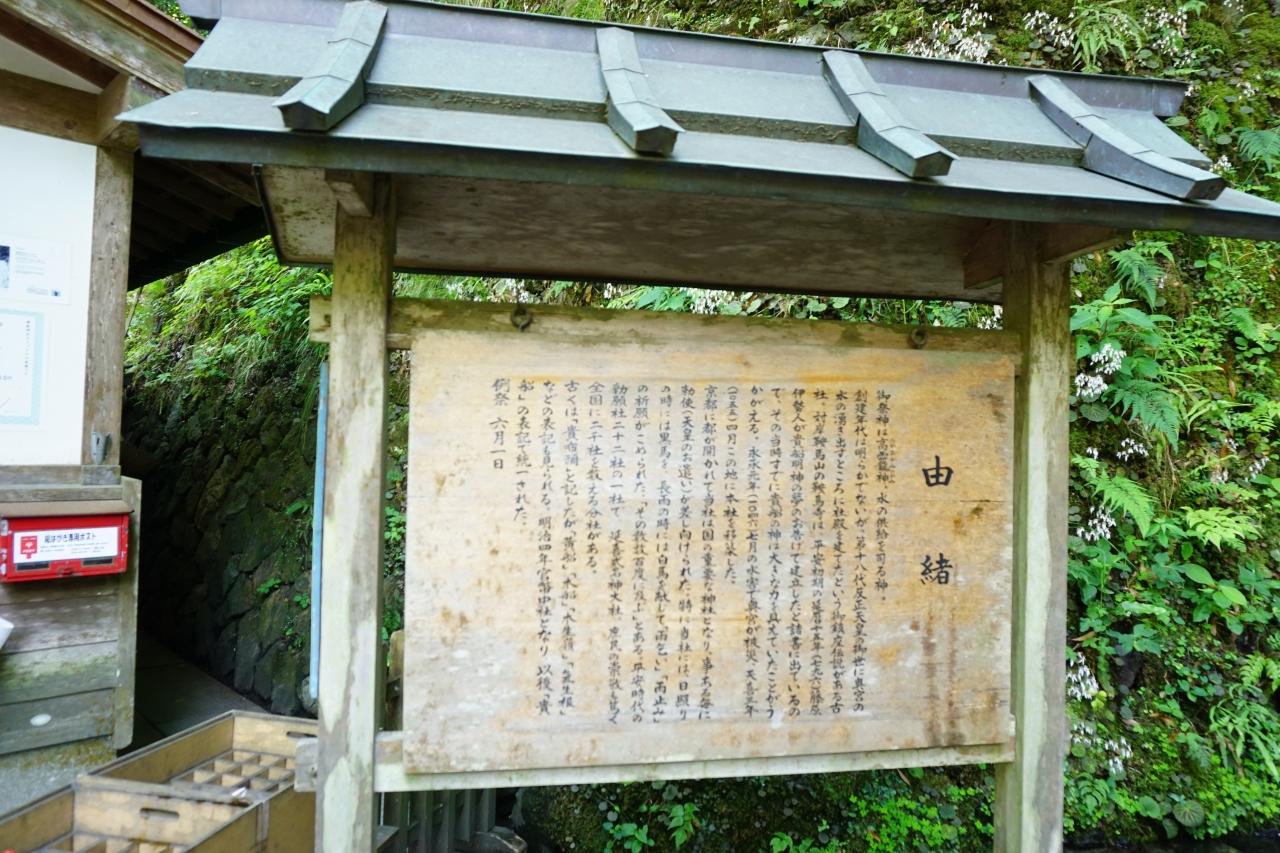 由緒
御祭神は高龗神、水の供給を司る神・
創建年代は明らかでないが第十八代反正天皇の御世に奥宮の
水の湧き出すところに社殿を建てたという御鎮座伝説がある古
社。対岸鞍馬山の鞍馬寺は、平安初期の延暦十五年(七九六)藤原
伊勢人が貴船明神の夢のお告げで建立したと諸書に出ているの
で、その当時すでに貴船の神は大きな力を具えていたことがう
かがえる。永承元年(一〇四六)七月の水害で奥宮が損災、天喜三年
(一〇五五)四月この地に本社を移築した。
京都に都が開かれて当社は国の重要な神社となり、事ある毎に
勅使(天皇のお遣い)が差し向けられた。特に当社には日照り
の時には黒馬を、長雨の時には白馬を献じて「雨乞い」「雨止み」
の祈願がこめられた。「その数数百度に及ぶ」とある。平安時代の
勅願社二十二社の一社で、延喜式名神大社、庶民の崇敬も篤く
全国に二千社を数える分社がある。
古くは「貴布禰」と記したが「黄船」「木船」「木生嶺」「氣生根」
などの表記も見られる。明治四年官幣中社となり、以後「貴
船」の表記で統一された。
例祭 六月一日
絵はがき専用ポスト